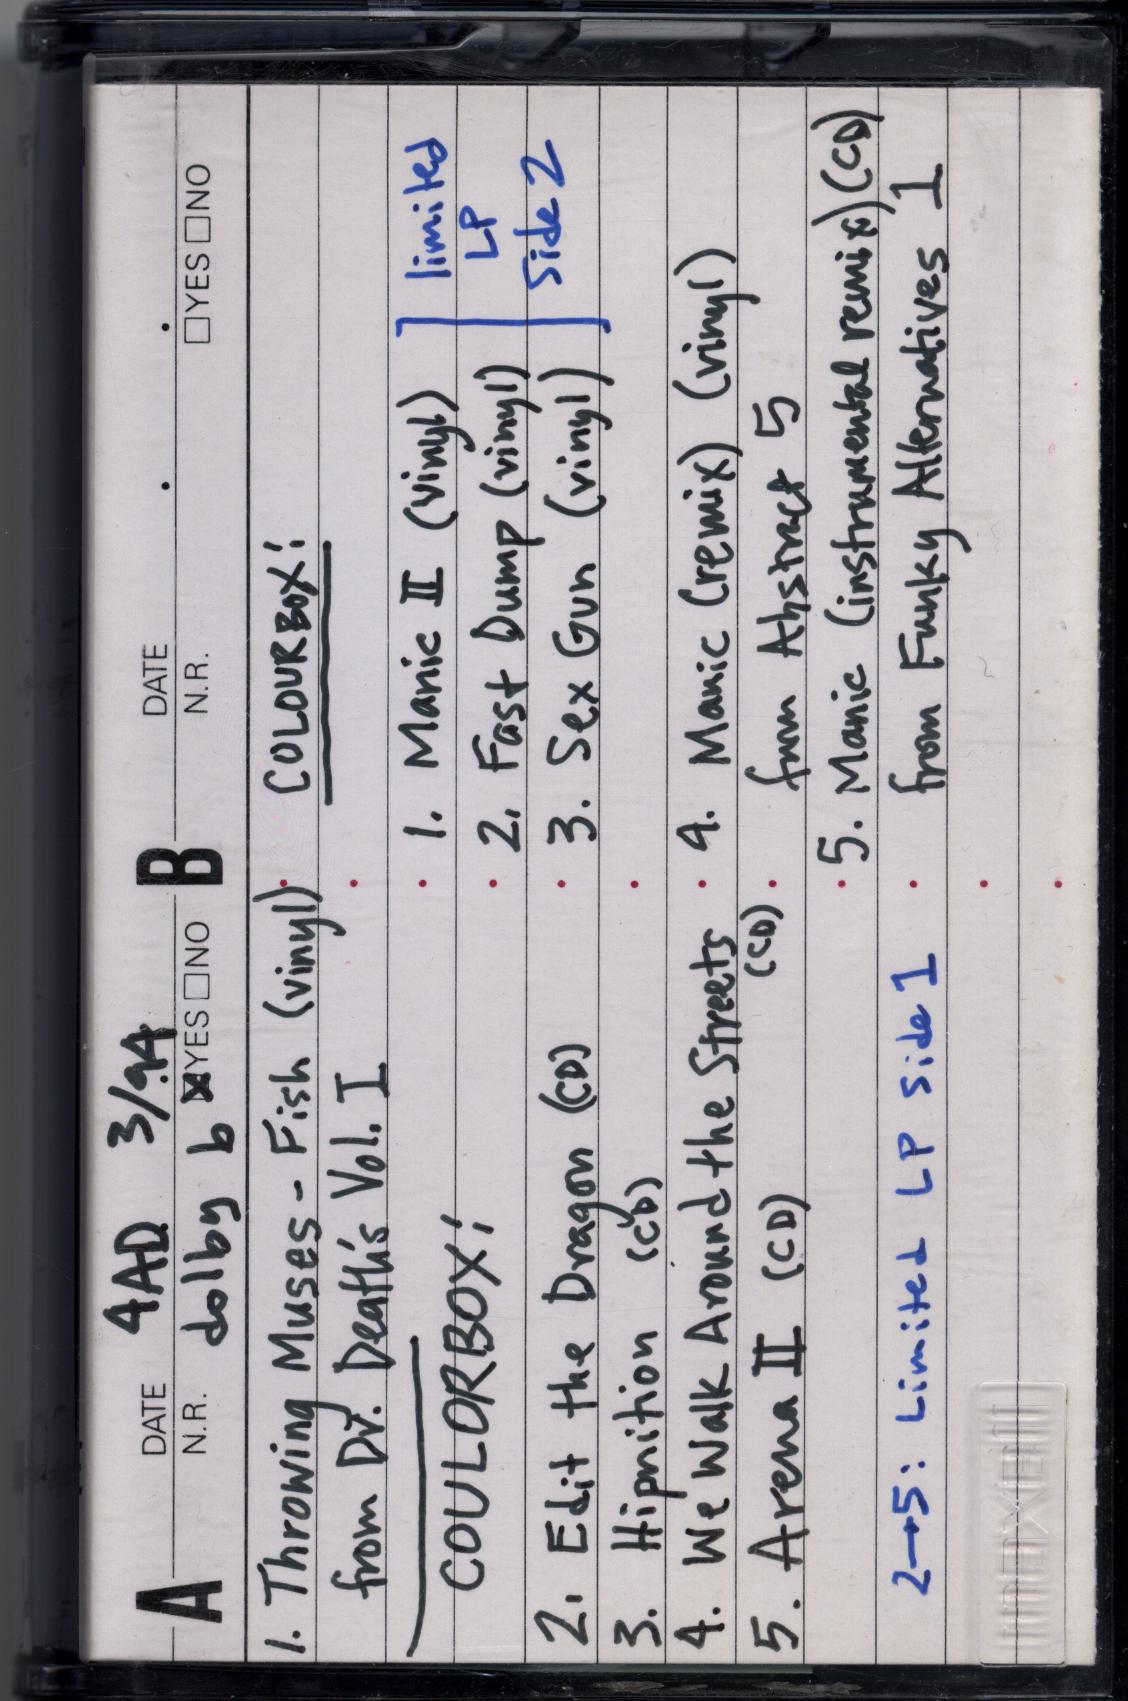 A
DATE
N.R.
4AD 3/94
dolby b ☒YES ☐NO
1. Throwing Muses - Fish (vinyl)
from Dr. Death's Vol. I
COULORBOX:
2. Edit the Dragon (CD)
3. Hipnition (CD)
4. We Walk Around the Streets
(CD)
5. Arena II (CD)
2→5: Limited LP side 1
maxell
B
DATE
N.R.
☐YES ☐NO
COLOURBOX:
1. Manic II (vinyl)
2. Fast Dump (vinyl)
3. Sex Gun (vinyl)
limited
LP
Side 2
4. Manic (remix) (vinyl)
from Abstract 5
5. Manic (instrumental remix) (CD)
from Funky Alternatives 1